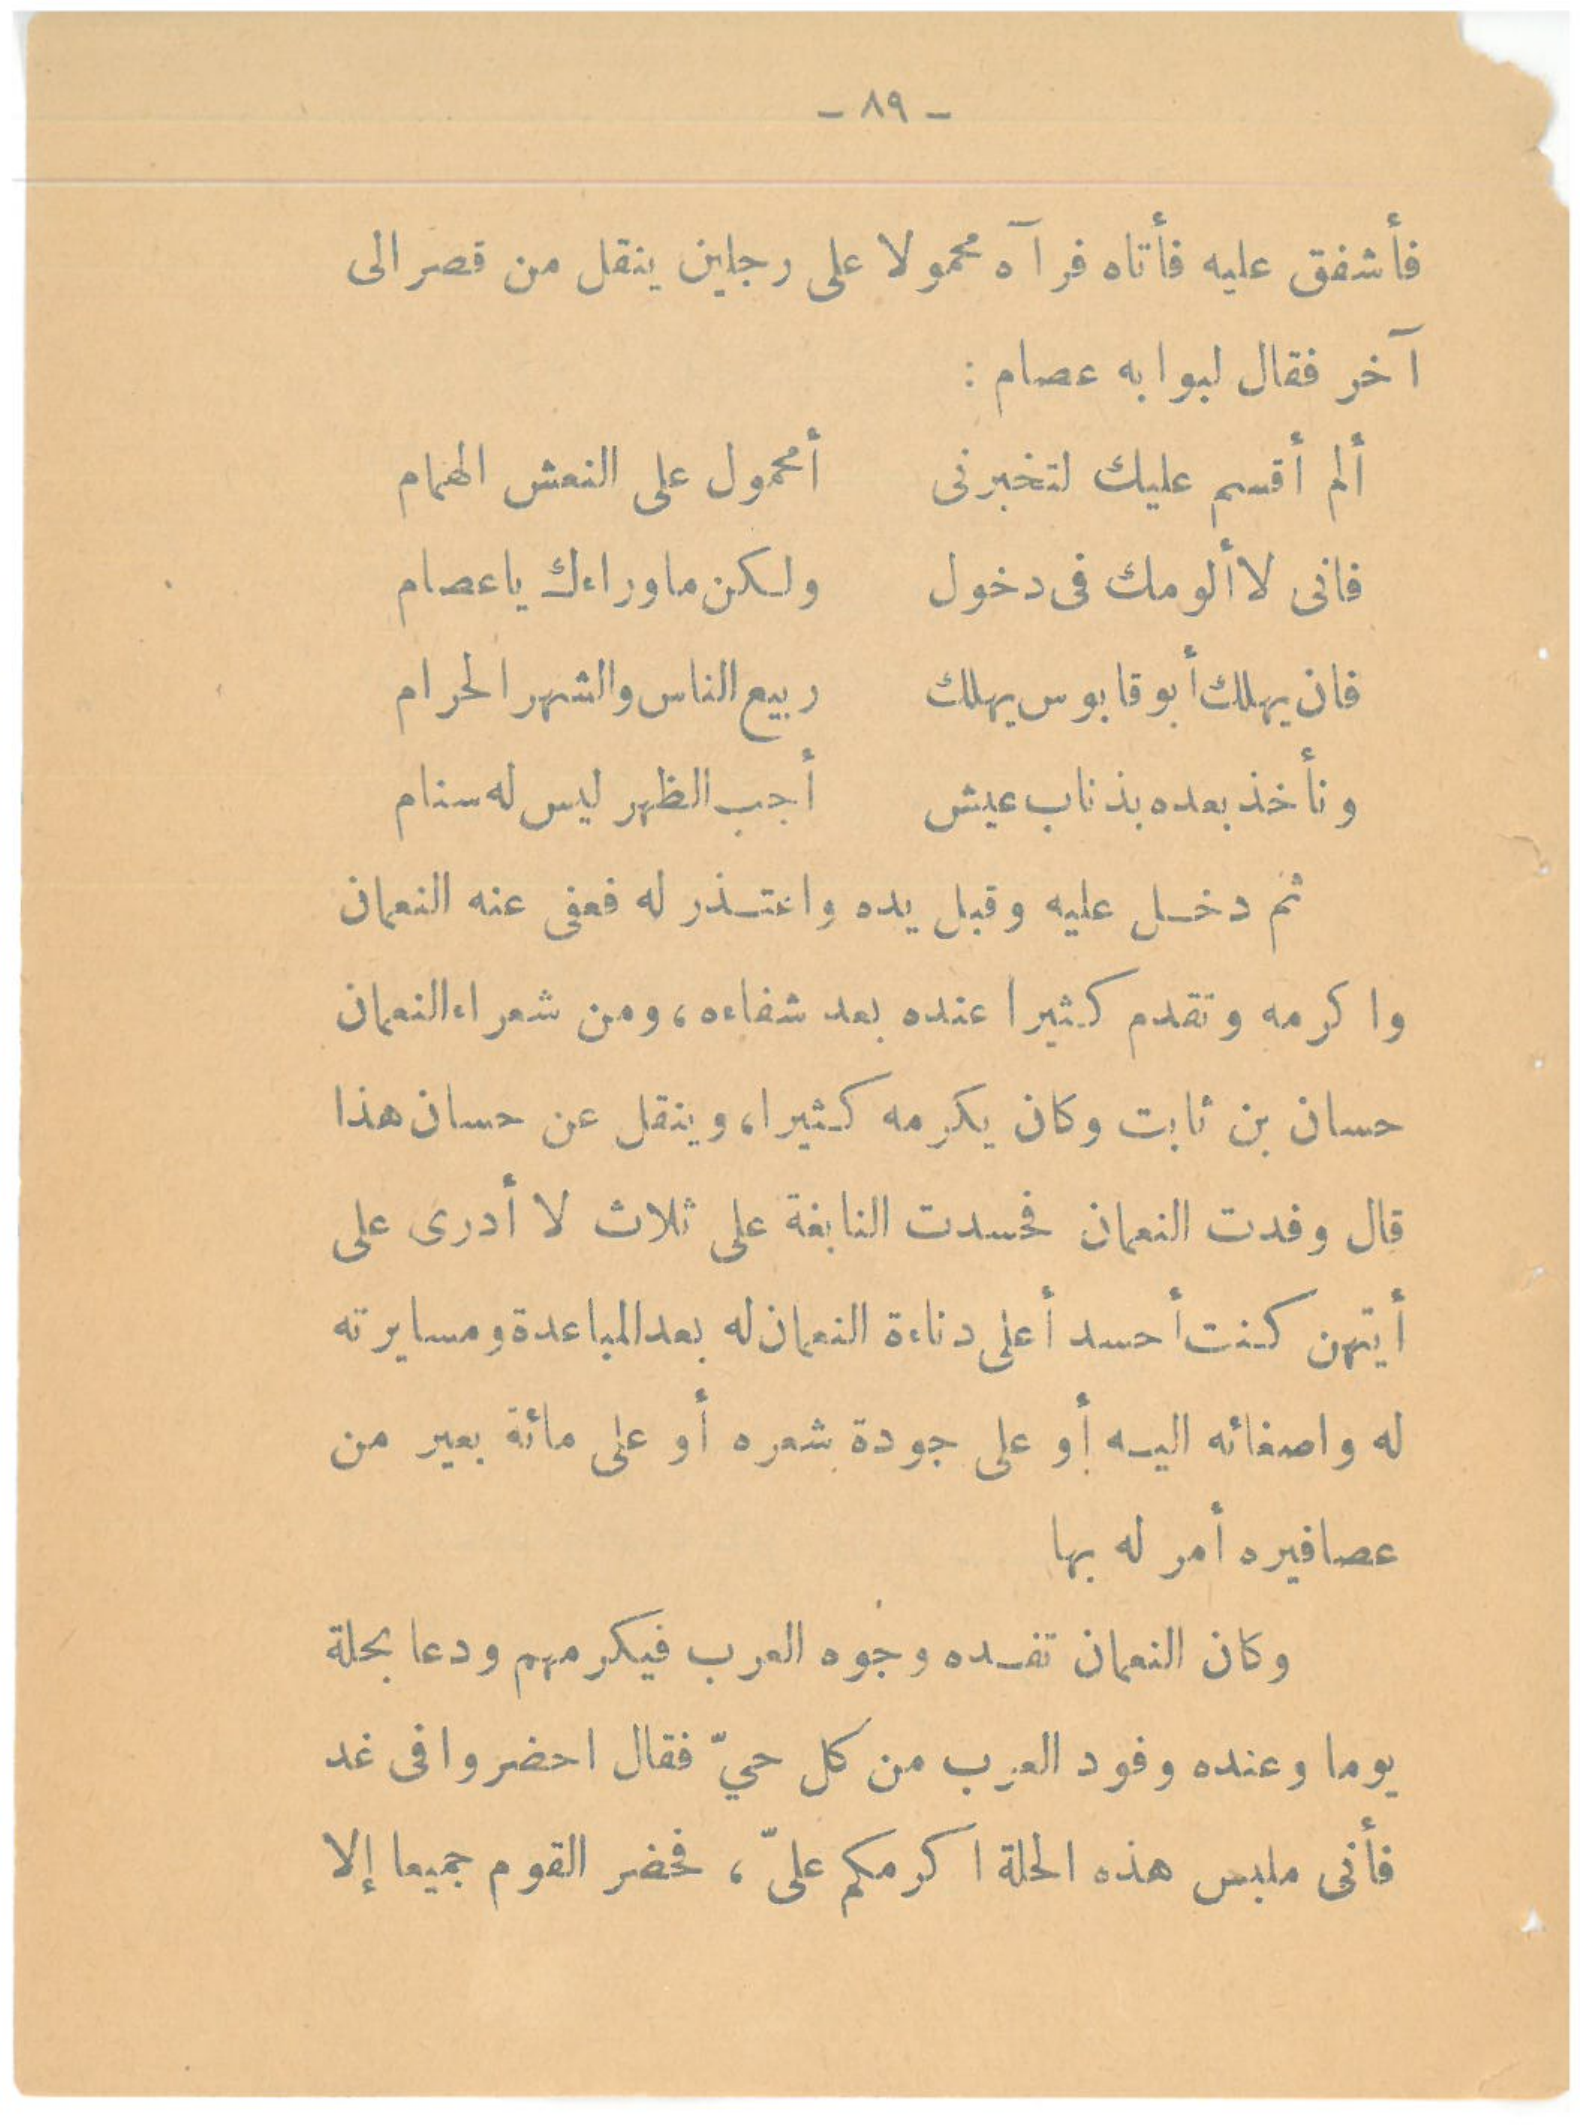 - ٨٩ -
فأشفق عليه فأتاه فرآه محمولا على رجلين ينقل من قصر الى
آخر فقال لبوابه عصام :
ألم أقسم عليك لتخبرنى أمحمول على النعش الهمام
فانى لا ألومك فى دخول ولكن ما وراءك ياعصام
فان يهلك أبو قابوس يهلك ربيع الناس والشهر الحرام
ونأخذ بعده بذناب عيش أجب الظهر ليس له سنام
ثم دخل عليه وقبل يده واعتذر له فعفى عنه النعمان
واكرمه وتقدم كثيرا عنده بعد شفاءه، ومن شعراء النعمان
حسان بن ثابت وكان يكرمه كثيرا، وينقل عن حسان هذا
قال وفدت النعمان فحسدت النابغة على ثلاث لا أدرى على
أيتهن كنت أحسد أعلى دناءة النعمان له بعد المباعدة ومسايرته
له واصغائه اليه أو على جودة شعره أو على مائة بعير من
عصافيره أمر له بها
وكان النعمان تفده وجوه العرب فيكرمهم ودعا بحلة
يوما وعنده وفود العرب من كل حيّ فقال احضروا فى غد
فأنى ملبس هذه الحلة اكرمكم علىّ ، فحضر القوم جميعا إلا